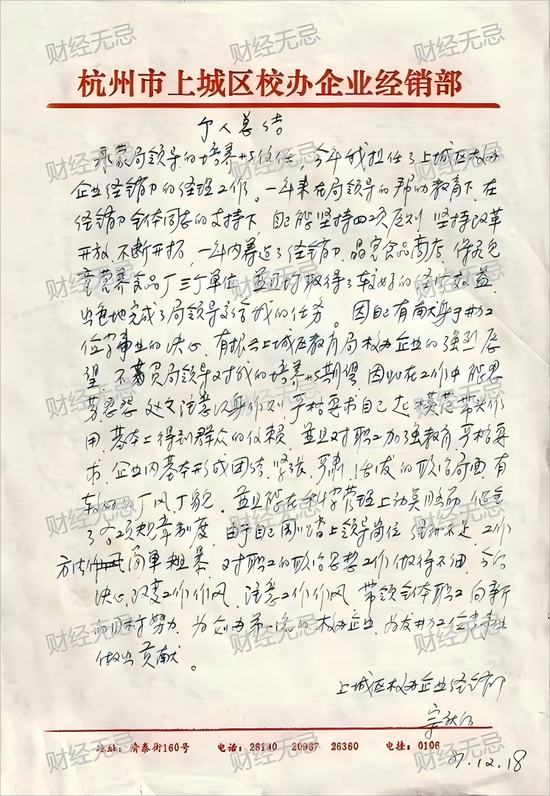 杭州市上城区校办企业经销部
个人总结
承蒙局领导的培养与信任，今年我担任了上城区校办
企业经销部的经理工作。一年来在局领导的帮助教育下，在
经销部全体同志的支持下，自己能坚持四项原则，坚持改革
开放，不断开拓，一年内筹建了经销部、晶宝食品商店、保灵儿
童营养食品厂三个单位，并且均取得了较好的经济效益，
出色地完成了局领导交给我的任务。因自己有献身于校办
企事业的决心，有振兴上城区教育局校办企业的强烈愿
望，不辜负局领导对我的培养与期望，因此在工作中能思
劳思怨，处处注意以身作则，严格要求自己，起模范带头作
用，基本上得到群众的信赖，并且对职工加强教育，严格要
求，企业内基本形成团结、紧张、严肃、活泼的政治局面，有
较好的厂风厂貌，并且能在科学管理上动真
了各项规章制度，由于自己刚踏上领导岗位，经验不足，工作
方法简单粗暴，对职工的政治思想工作做得不细，今后
决心改变工作作风，注意工作作风，带领全体职工向新
的目标努力，为创办第一流的校办企业，为发
做出贡献。
上城区校办企业经销部
宗庆后
地址：清泰街160号 电话：26140 20967 26360 电挂：0106
87.12.18
财经无忌